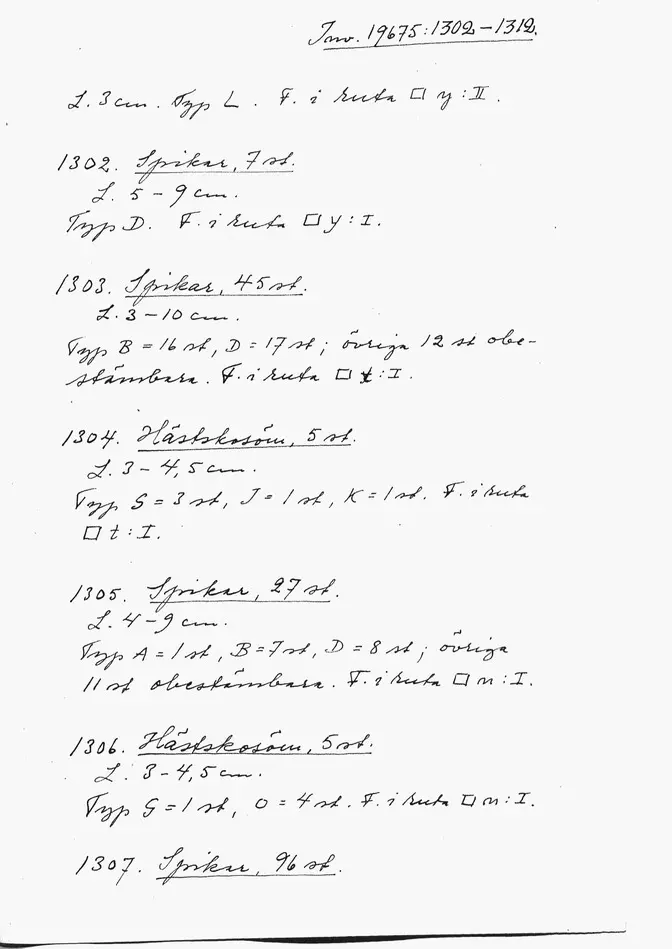 Inv. 19675:1302-1312.
L. 3 cm. Typ L. F. i ruta □ y:II.
1302. Spikar, 7 st.
L. 5-9 cm.
Typ D. F. i ruta □ y:I.
1303. Spikar, 45 st.
L. 3-10 cm.
Typ B = 16 st, D = 17 st; övriga 12 st obe-
stämbara. F. i ruta □ t:I.
1304. Hästskosöm, 5 st.
L. 3-4,5 cm.
Typ G = 3 st, J = 1 st, K = 1 st. F. i ruta
□ t:I.
1305. Spikar, 27 st.
L. 4-9 cm.
Typ A = 1 st, B = 7 st, D = 8 st; övriga
11 st obestämbara. F. i ruta □ n:I.
1306. Hästskosöm, 5 st.
L. 3-4,5 cm.
Typ G = 1 st, O = 4 st. F. i ruta □ n:I.
1307. Spikar, 96 st.